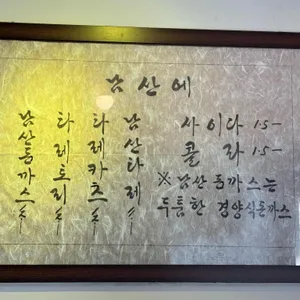 남산에
남산돈까스
타레토리
타레카츠
남산타레
사이다 15-
콜라 15-
※ 남산돈까스는
두툼한 경양식돈까스